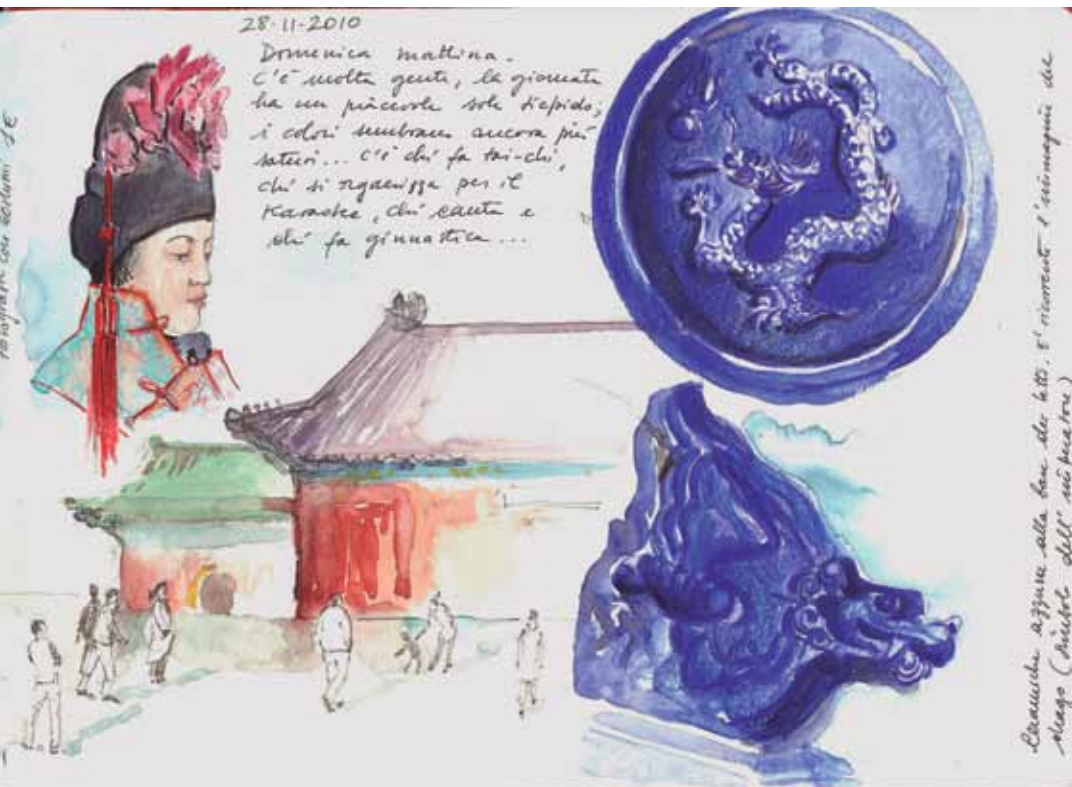 28-11-2010
Domenica mattina.
C'è molta gente, la giornata
ha un piacevole sole tiepido;
i colori sembrano ancora più
saturi... c'è chi fa tai-chi,
chi si organizza per il
Karaoke, chi canta e
chi fa ginnastica...
fotografie con costumi 1€
Ceramiche azzurre alla base dei tetti. E' ricorrente l'immagine del
drago (simbolo dell'imperatore)